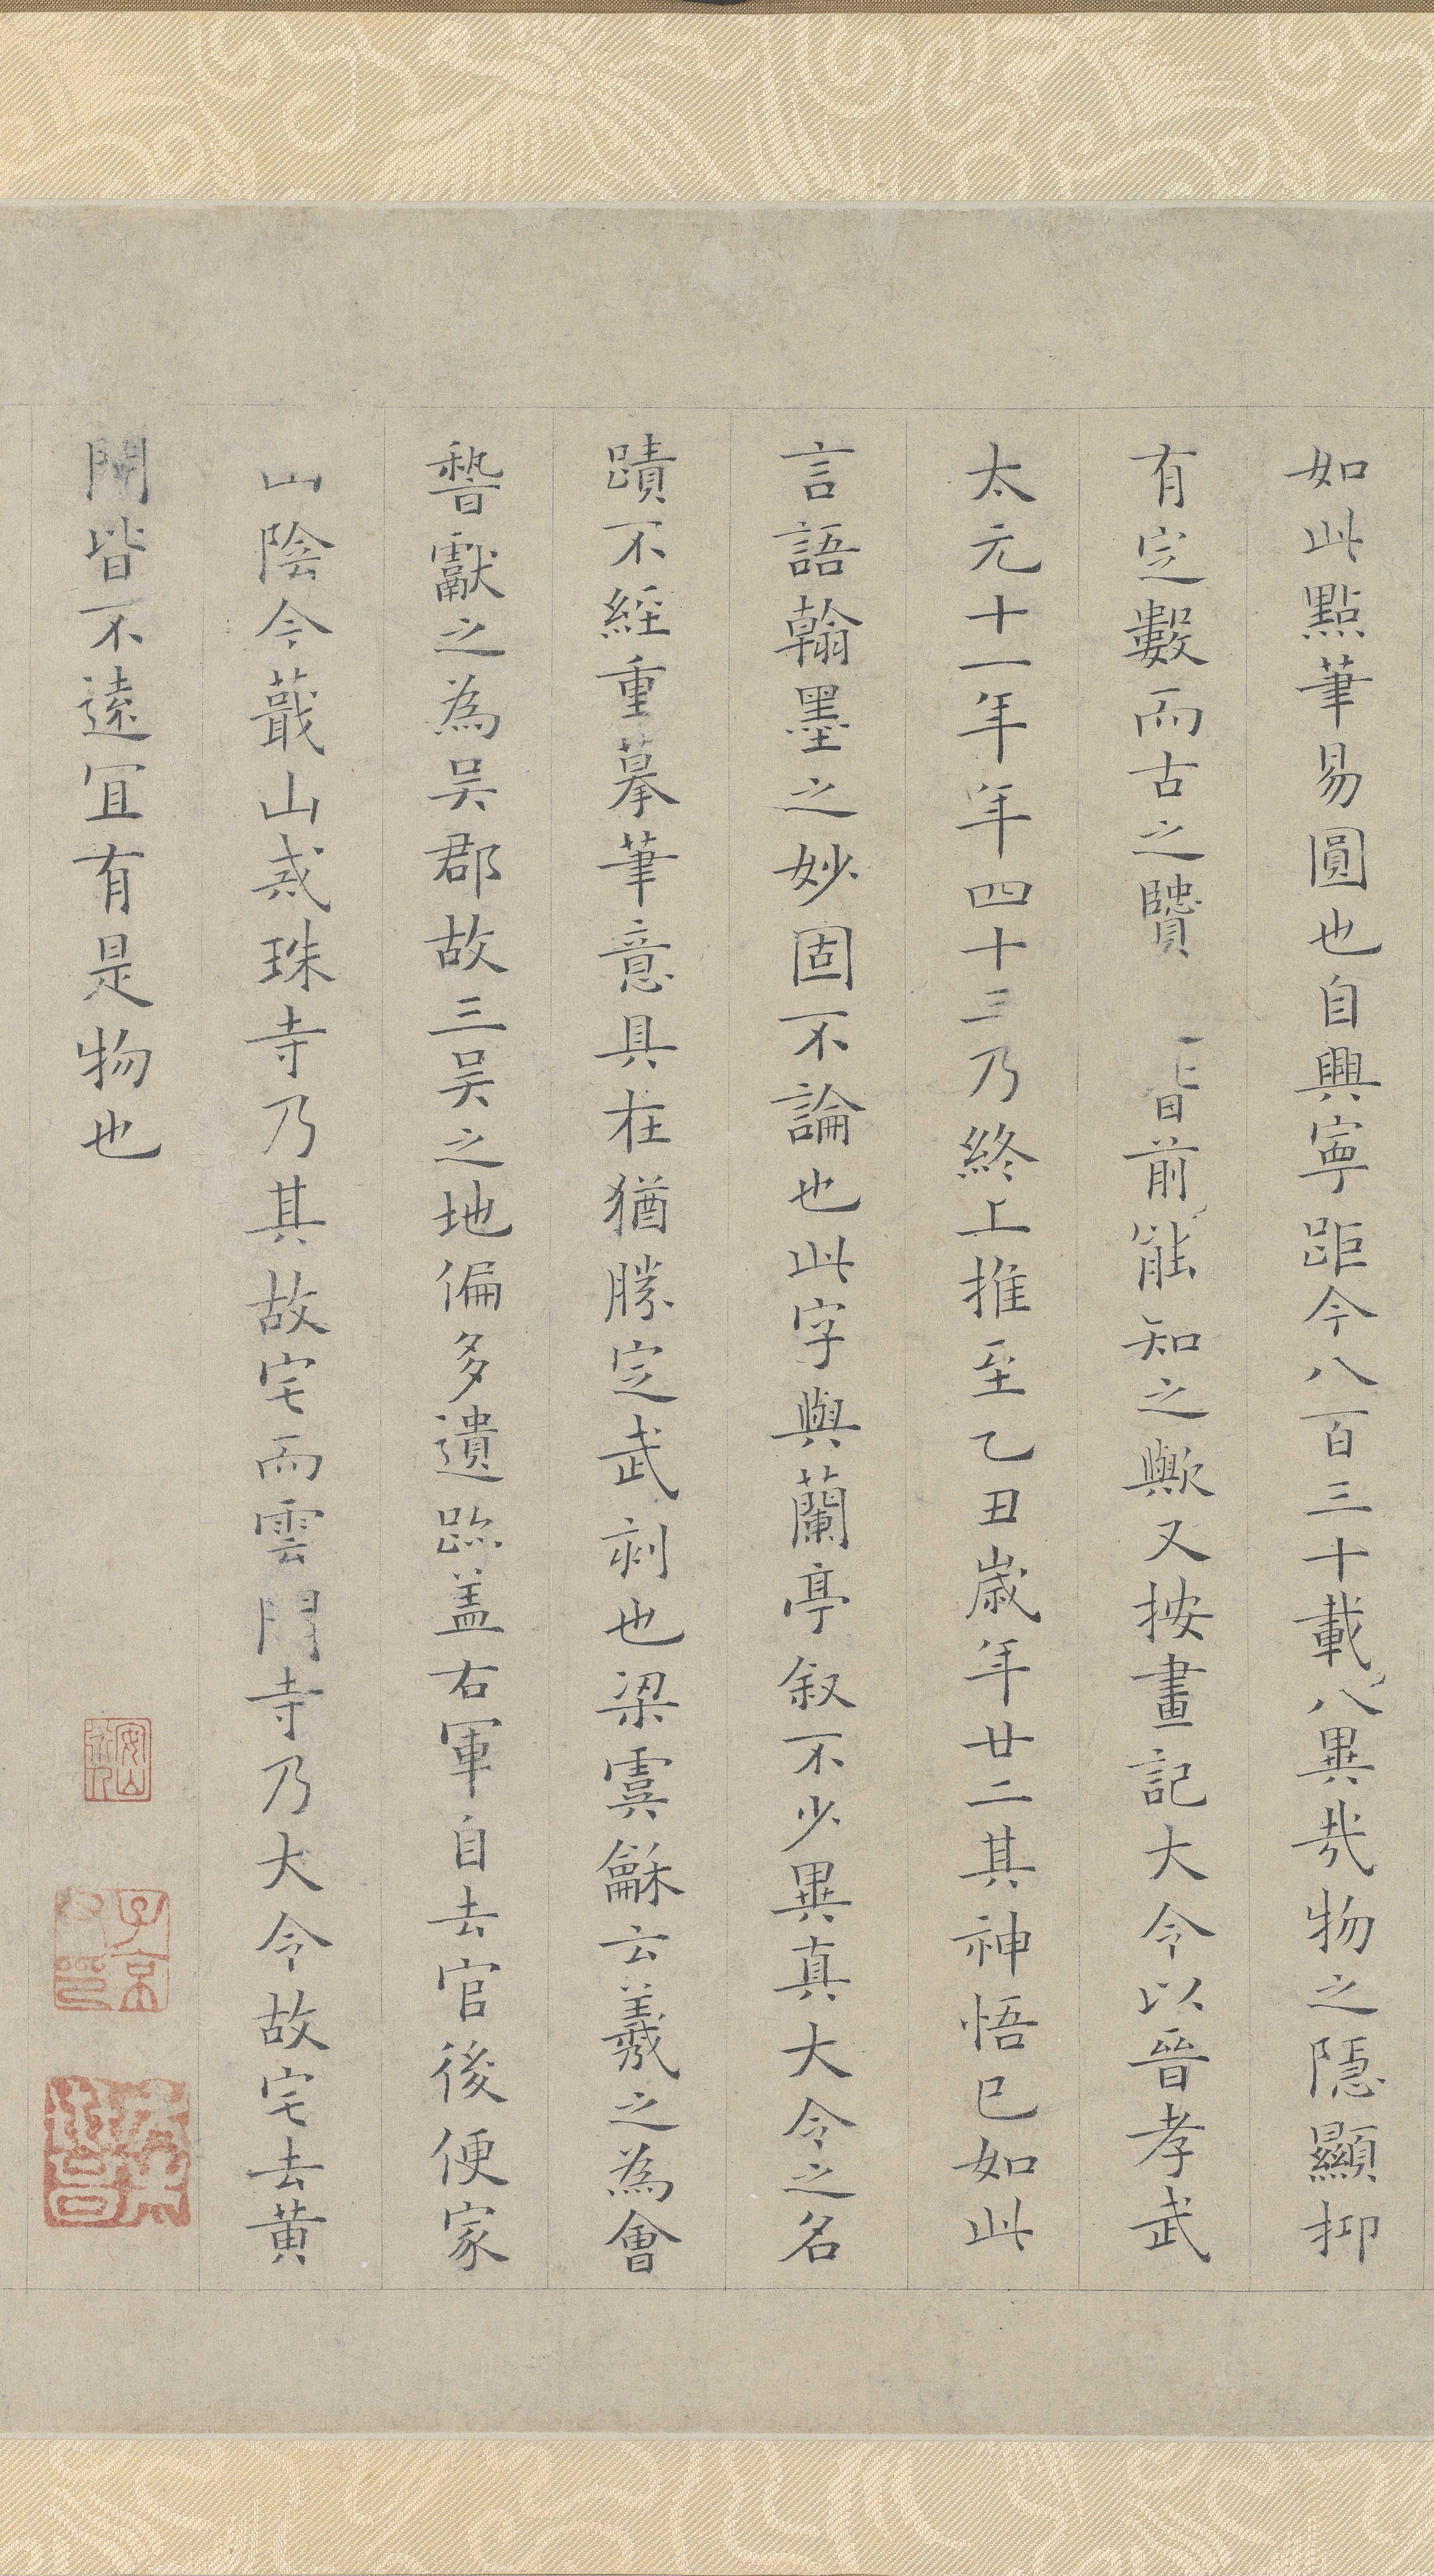 如此點筆易圓也自興寧距今八百三十載八異哉物之隱顯抑
有定數而古之賢 皆前能知之歟又按畫記大令以晉孝武
太元十一年年四十三乃終上推至乙丑歲年廿二其神悟已如此
言語翰墨之妙固不論也此字與蘭亭叙不少異真大令之名
蹟不經重摹筆意具在猶勝定武刻也梁虞龢云羲之為會
稽獻之為吳郡故三吳之地偏多遺跡蓋右軍自去官後便家
山陰今蕺山戒珠寺乃其故宅而雲門寺乃大令故宅去黃
閍皆不遠宜有是物也
子京